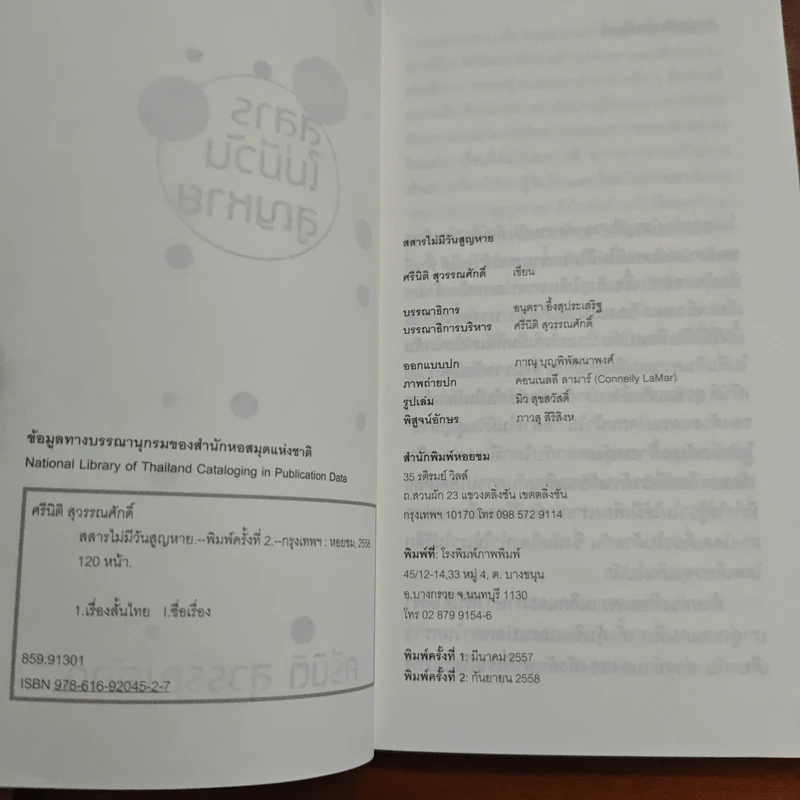 ข้อมูลทางบรรณานุกรมของสำนักหอสมุดแห่งชาติ
National Library of Thailand Cataloging in Publication Data
ศรีนิติ สุวรรณศักดิ์
สสารไม่มีวันสูญหาย.--พิมพ์ครั้งที่ 2.--กรุงเทพฯ : หอยชม, 2558
120 หน้า.
1.เรื่องสั้นไทย I.ชื่อเรื่อง
859.91301
ISBN 978-616-92045-2-7
สสารไม่มีวันสูญหาย
ศรีนิติ สุวรรณศักดิ์ เขียน
บรรณาธิการ อนุตรา อึ้งสุประเสริฐ
บรรณาธิการบริหาร ศรีนิติ สุวรรณศักดิ์
ออกแบบปก ภาณุ บุญพิพัฒนาพงศ์
ภาพถ่ายปก คอนเนลลี ลามาร์ (Connelly LaMar)
รูปเล่ม มิว สุขสวัสดิ์
พิสูจน์อักษร ภาวสุ สิริสิงห
สำนักพิมพ์หอยชม
35 รติรมย์ วิลล์
ถ.สวนผัก 23 แขวงตลิ่งชัน เขตตลิ่งชัน
กรุงเทพฯ 10170 โทร 098 572 9114
พิมพ์ที่: โรงพิมพ์ภาพพิมพ์
45/12-14,33 หมู่ 4, ต. บางขนุน
อ.บางกรวย จ.นนทบุรี 1130
โทร 02 879 9154-6
พิมพ์ครั้งที่ 1: มีนาคม 2557
พิมพ์ครั้งที่ 2: กันยายน 2558